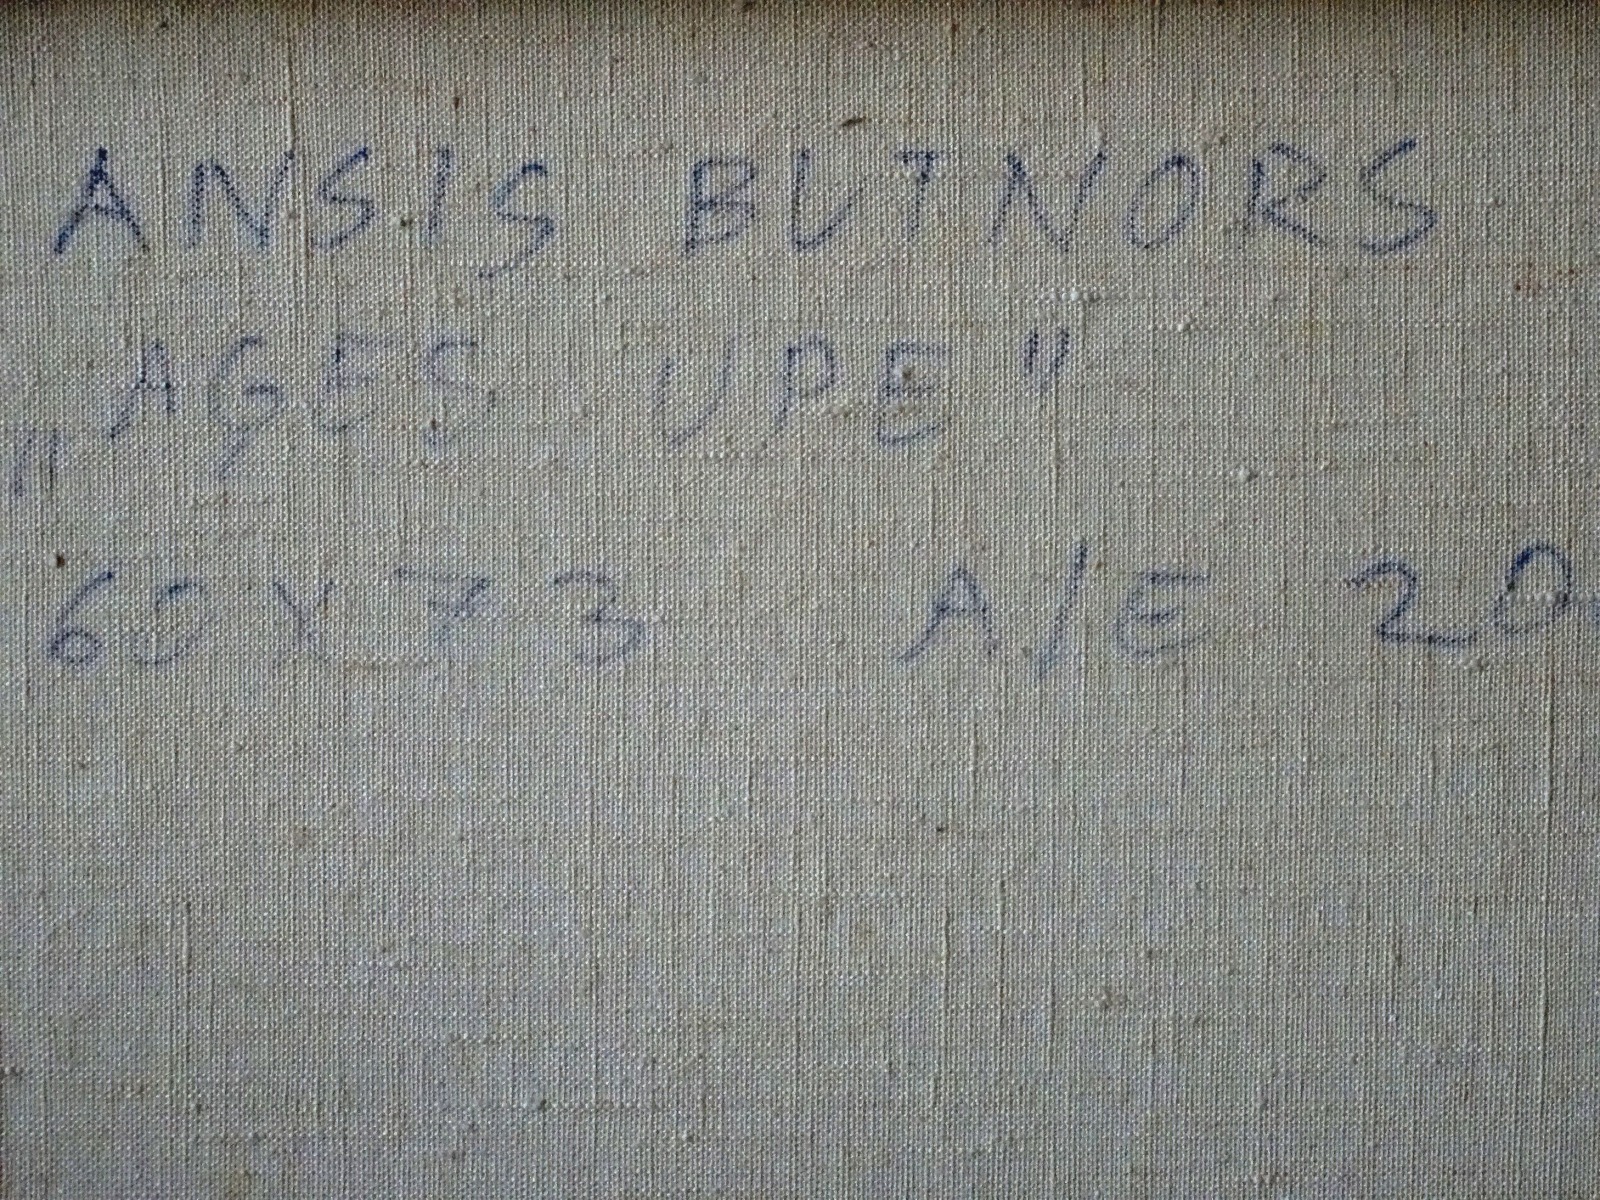 ANSIS BUTNORS
„AĢES UPE"
60X73 A/E 20